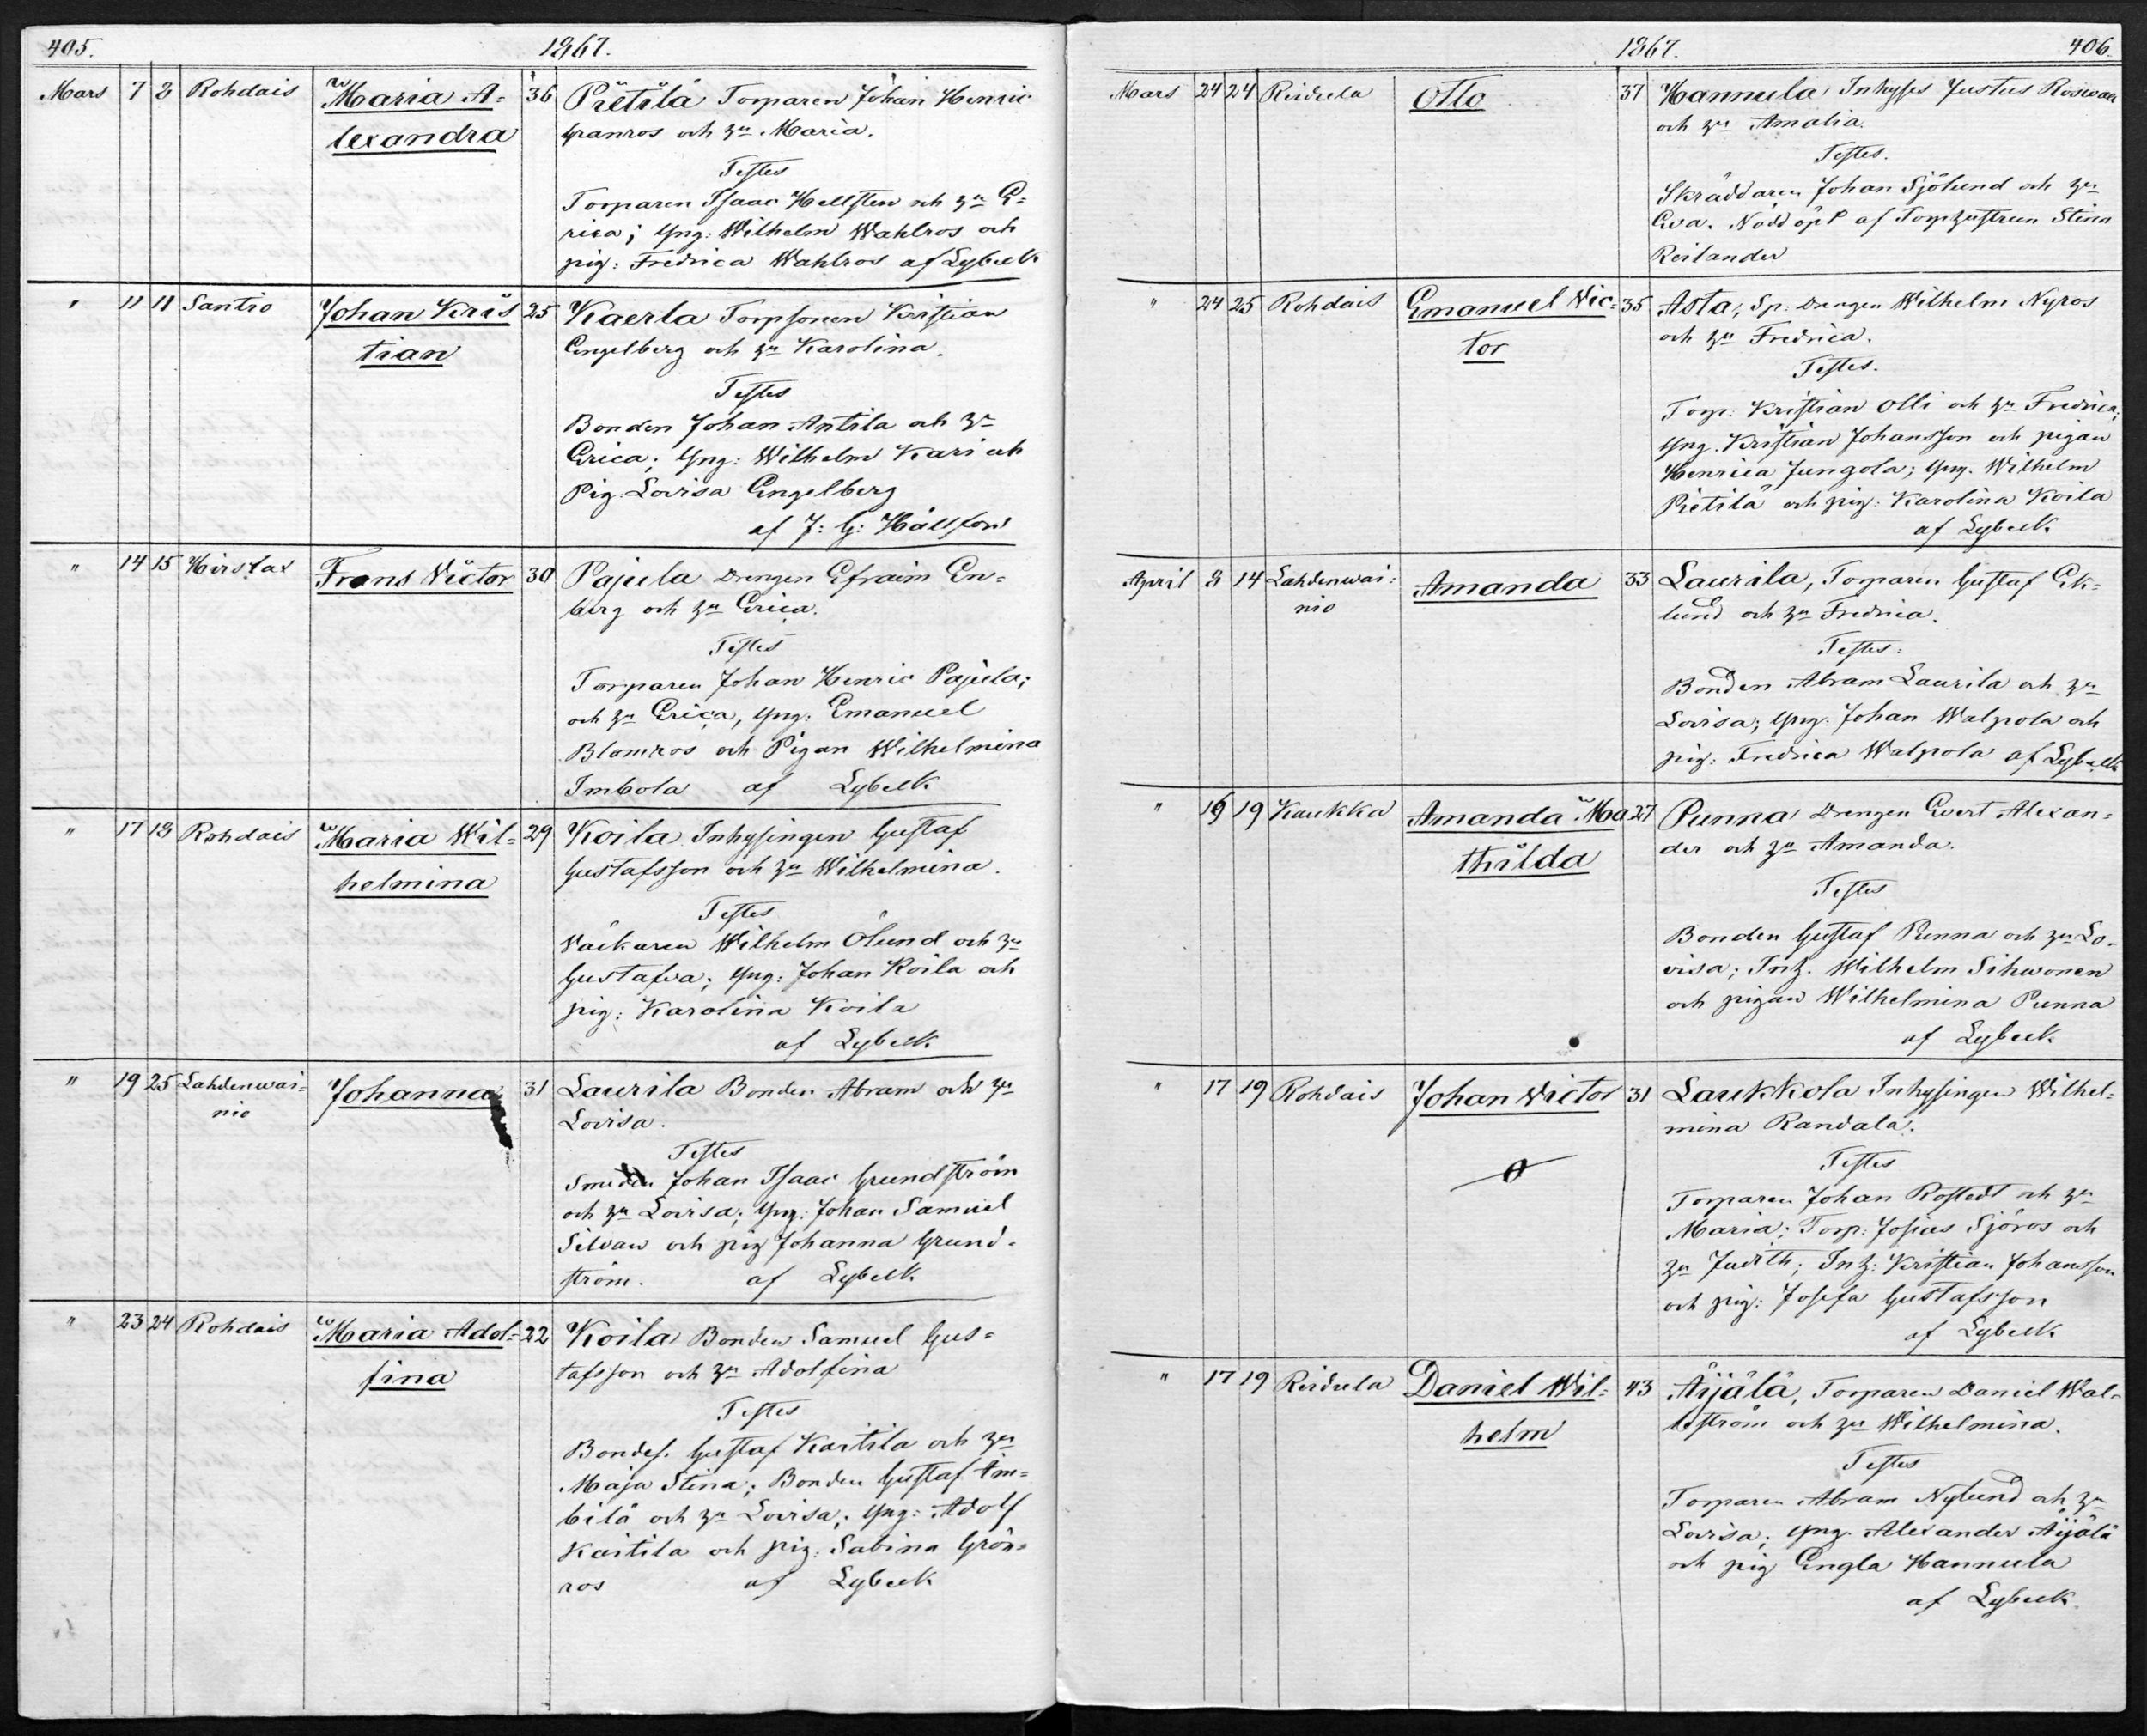 405.
1867.
Mars 7 8 Rohdais Maria A= 36 Pietilä Torparen Johan Henric
lexandra Granros och hu Maria.
Testes
Torparen Isaac Hellsten och hu E=
rica; Yng: Wilhelm Wahlros och
pig: Fredrica Wahlros af Lybeck
" 11 11 Santio Johan Kris 25 Kaerla Torpsonen Kristian
tian Engelberg och hu Karolina.
Testes
Bonden Johan Antila och hu
Erica; Yng: Wilhelm Kari och
Pig. Lovisa Engelberg
af J: G: Hällfors
" 14 15 Hirslax Frans Victor 30 Pajula Drengen Efraim En=
berg och hu Erica.
Testes
Torparen Johan Henric Pajula;
och hu Erica, Yng: Emanuel
Blomros och Pigan Wilhelmina
Imbola af Lybeck
" 17 18 Rohdais Maria Wil= 29 Koila Inhysingen Gustaf
helmina Gustafsson och hu Wilhelmina.
Testes
Wäckaren Wilhelm Ölund och hu
Gustafva; Yng: Johan Koila och
pig: Karolina Koila
af Lybeck
" 19 25 Lahdenwai= Johanna 31 Laurila Bonden Abram och hu
nio Lovisa.
Testes
Smeden Johan Isaac Grundström
och hu Lovisa; Yng: Johan Samuel
Silvan och pig Johanna Grund=
ström. af Lybeck
" 23 24 Rohdais Maria Adol= 22 Koila Bonden Samuel Gus=
fina tafsson och hu Adolfina
Testes
Bondes. Gustaf Kaitila och hu
Maja Stina; Bonden Gustaf Im=
bilä och hu Lovisa; Yng: Adolf
Kaitila och pig: Sabina Grön=
ros af Lybeck
1867.
406.
Mars 24 24 Reidula Otto 37 Hannula Inhyses Justus Roswall
och hu Amalia.
Testes.
Skräddaren Johan Sjölund och hu
Eva. Nöddöpt af Torphustrun Stina
Reilander
" 24 25 Rohdais Emanuel Vic= 35 Asta, Sp: Drengen Wilhelm Nyros
tor och hu Fredrica.
Testes.
Torp: Kristian Olli och hu Fredrica;
Yng. Kristian Johansson och pigan
Henrica Jungola; Yng. Wilhelm
Pietilä och pig: Karolina Koila
af Lybeck
April 8 14 Lahdenwai= Amanda 33 Laurila, Torparen Gustaf Ek=
nio lund och hu Fredrica.
Testes:
Bonden Abram Laurila och hu
Lovisa; Yng: Johan Walpola och
pig: Fredrica Walpola af Lybeck
" 16 19 Kaukka Amanda Ma 27 Punna Drengen Evert Alexan=
thilda der och hu Amanda.
Testes
Bonden Gustaf Punna och hu Lo=
visa; Inh. Wilhelm Sihwonen
och pigan Wilhelmina Punna
af Lybeck
" 17 19 Rohdais Johan Victor 31 Laukkola Inhysingen Wilhel=
mina Randala.
Testes
Torparen Johan Rostedt och hu
Maria; Torp: Josias Sjöros och
hu Judith; Inh: Kristian Johansson
och pig: Josefa Gustafsson
af Lybeck
" 17 19 Reidula Daniel Wil= 43 Äijälä, Torparen Daniel Wal=
helm ström och hu Wilhelmina.
Testes
Torparen Abram Nylund och hu
Lovisa; Yng. Alexander Äijälä
och pig Engla Hannula
af Lybeck